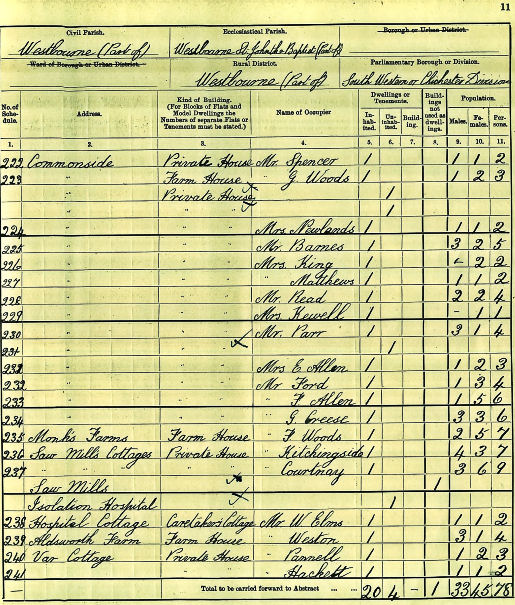 11
Civil Parish.
Westbourne (Part of)
Ecclesiastical Parish.
Westbourne St John the Baptist (Part of)
Borough or Urban District.
Ward of Borough or Urban District.
Rural District.
Westbourne (Part of)
Parliamentary Borough or Division.
South Western or Chichester Division
No. of Schedule.
Address.
Kind of Building. (For Blocks of Flats and Model Dwellings the Numbers of separate Flats or Tenements must be stated.)
Name of Occupier
Dwellings or Tenements.
Inhabited.
Uninhabited.
Building.
Buildings not used as dwellings.
Population.
Males.
Females.
Persons.
1. 2. 3. 4. 5. 6. 7. 8. 9. 10. 11.
222 Commonside Private House Mr. Spencer 1 1 1 2
223 " Farm House " G. Woods 1 1 2 3
" Private House x 1
" " x 1
224 " " Mrs Newlands 1 1 1 2
225 " " Mr. Barnes 1 3 2 5
226 " " Mrs. King 1 - 2 2
227 " " " Matthews 1 1 1 2
228 " " Mr. Read 1 2 2 4
229 " " Mrs. Kewell 1 - 1 1
230 " " Mr. Parr 1 3 1 4
231 " " x 1
232 " " Mrs E Allen 1 1 2 3
232 " " Mr Ford 1 1 3 4
233 " " " F Allen 1 1 5 6
234 " " " G. Creese 1 3 3 6
235 Monk's Farms Farm House " F Woods 1 2 5 7
236 Saw Mills Cottages Private House " Kitchingside 1 4 3 7
237 " " " Courtnay 1 3 6 9
Saw Mills x 1
Isolation Hospital x 1
238 Hospital Cottage Caretakers Cottage Mr W. Elms 1 1 1 2
239 Aldsworth Farm Farm House " Weston 1 3 1 4
240 Var Cottage Private House " Pannell 1 1 2 3
241 " " " Hackett 1 1 1 2
— Total to be carried forward to Abstract ... ... 20 4 - 1 33 45 78